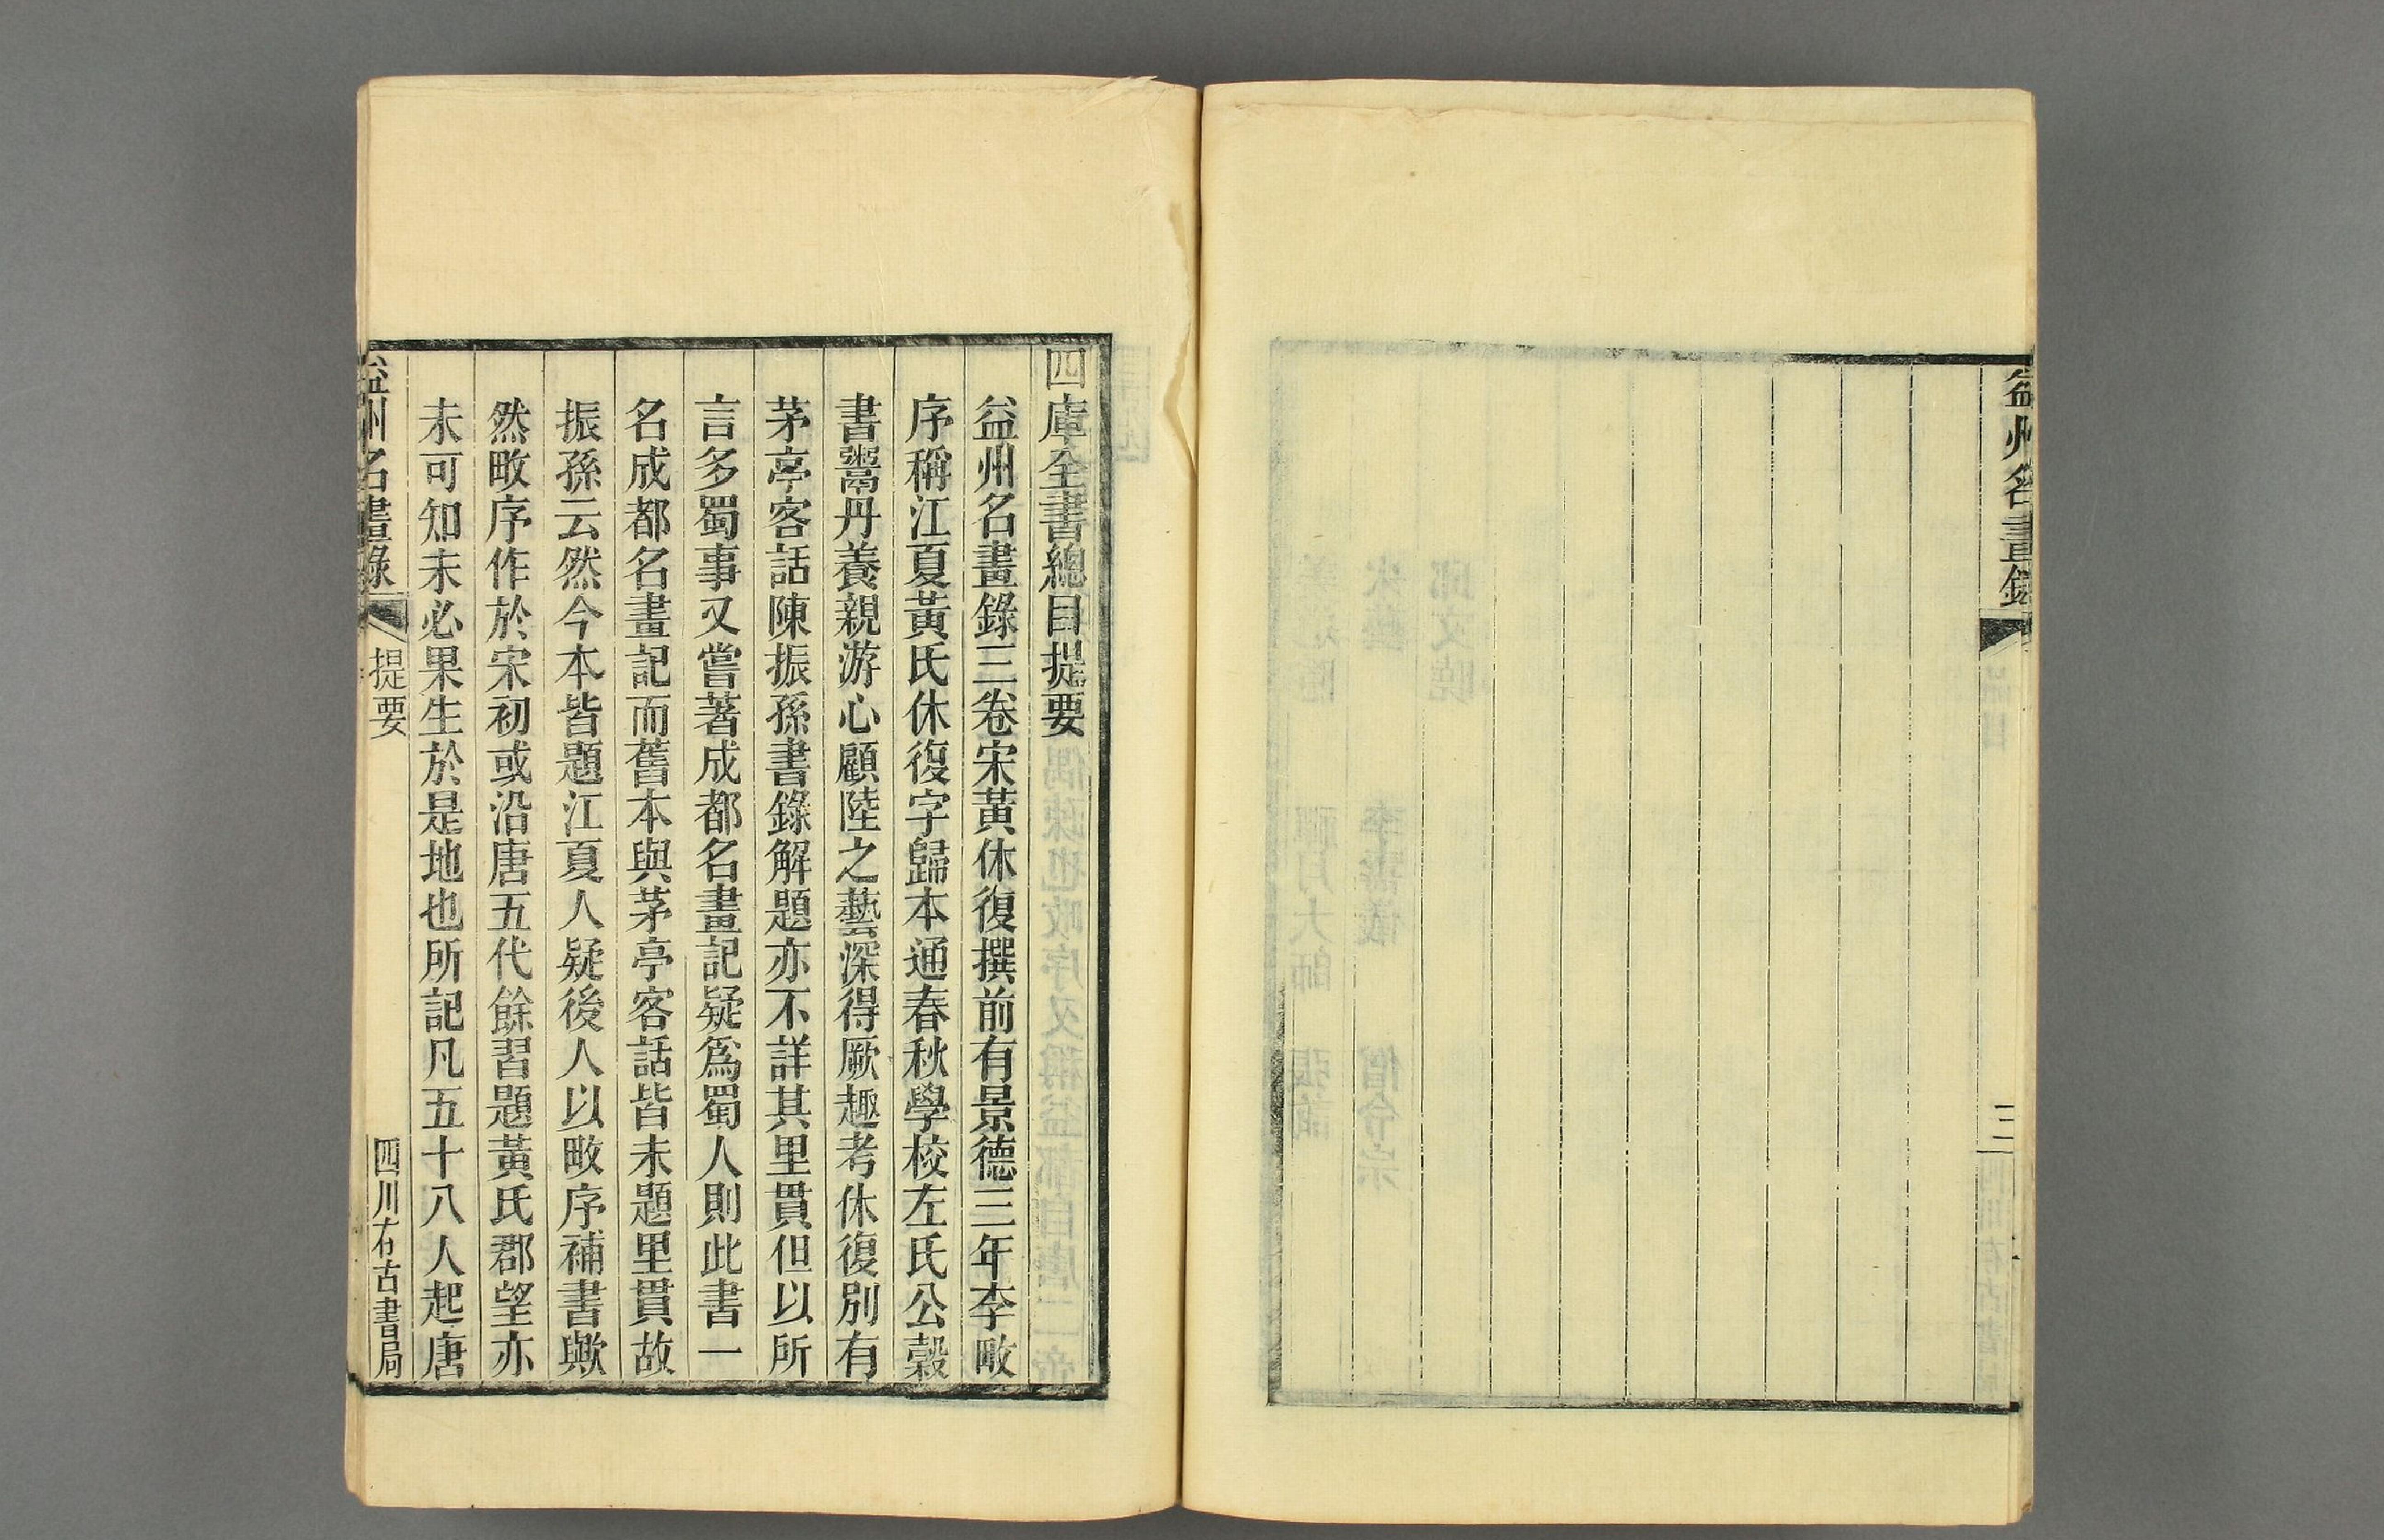 益州名畫錄
三
四庫全書總目提要
益州名畫錄三卷宋黃休復撰前有景德三年李畋
序稱江夏黃氏休復字歸本通春秋學校左氏公穀
書鬻丹養親游心顧陸之藝深得厥趣考休復別有
茅亭客話陳振孫書錄解題亦不詳其里貫但以所
言多蜀事又嘗著成都名畫記疑爲蜀人則此書一
名成都名畫記而舊本與茅亭客話皆未題里貫故
振孫云然今本皆題江夏人疑後人以畋序補書歟
然畋序作於宋初或沿唐五代餘習題黃氏郡望亦
未可知未必果生於是地也所記凡五十八人起唐
益州名畫錄 提要 四川存古書局